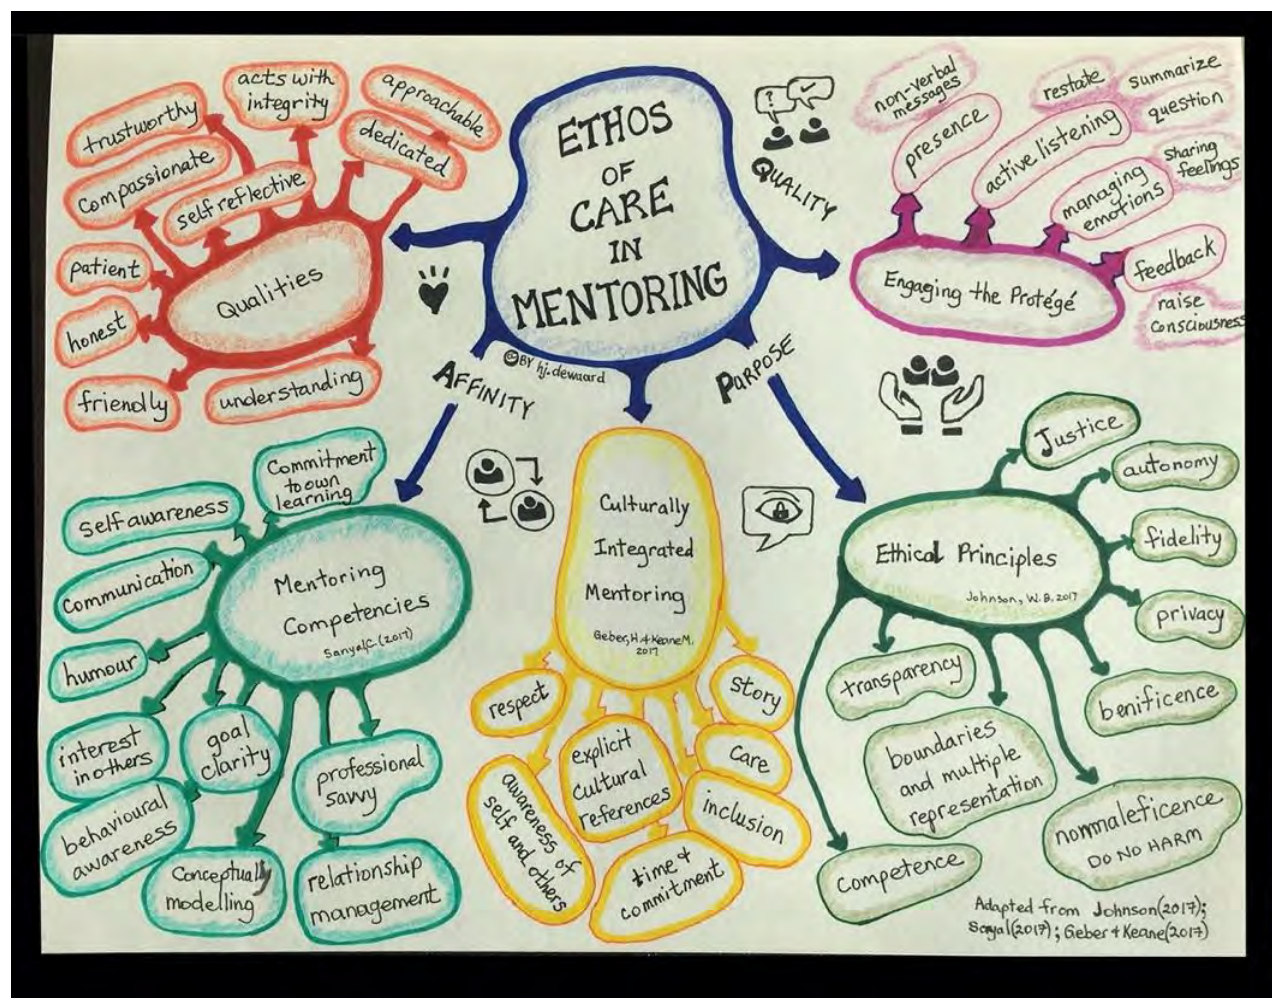 ETHOS
OF
CARE
IN
MENTORING
BY hj.dewaard
QUALITY
AFFINITY
PURPOSE
Qualities
trustworthy
acts with
integrity
approachable
dedicated
compassionate
self reflective
patient
honest
friendly
understanding
Engaging the Protégé
non-verbal
messages
presence
restate
summarize
question
active listening
sharing
feelings
managing
emotions
feedback
raise
consciousness
Mentoring
Competencies
Sanyal,C.(2017)
Commitment
to own
learning
self awareness
communication
humour
interest
in others
goal
clarity
behavioural
awareness
Conceptually
modelling
professional
savvy
relationship
management
Culturally
Integrated
Mentoring
Geber, H. & Keane M.
2017
respect
awareness of
self and others
explicit
cultural
references
time &
commitment
inclusion
care
story
Ethical Principles
Johnson, W.B. 2017
Justice
autonomy
fidelity
privacy
benificence
nonmaleficence
DO NO HARM
transparency
boundaries
and multiple
representation
competence
Adapted from Johnson(2017);
Sanyal(2017); Geber & Keane(2017)